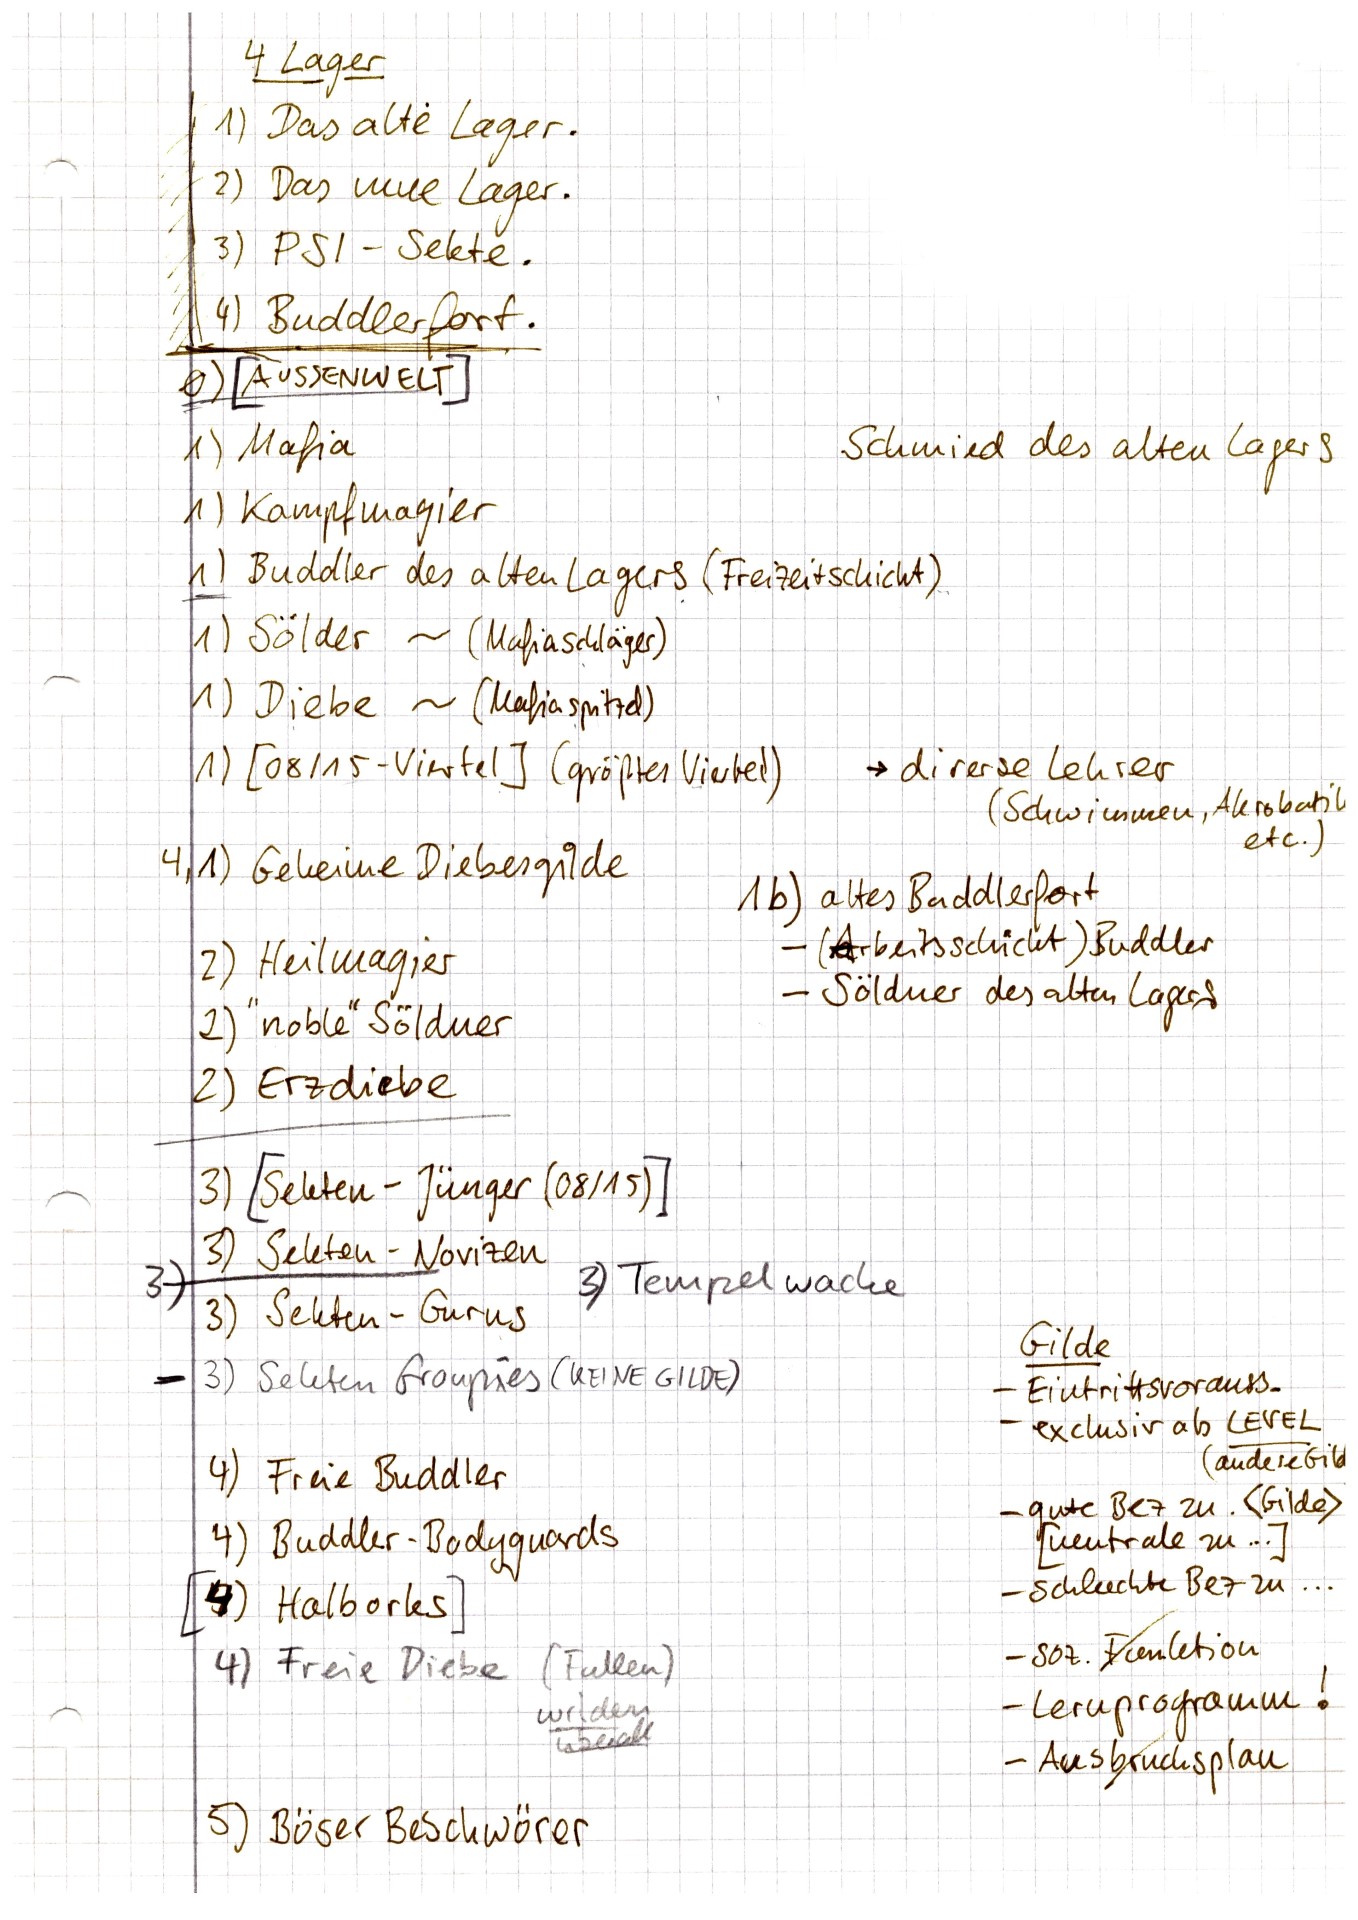 4 Lager
1) Das alte Lager.
2) Das neue Lager.
3) PSI - Sekte.
4) Buddlerfort.
0) [AUSSENWELT]
1) Mafia
Schmied des alten Lagers
1) Kampfmagier
1) Buddler des alten Lagers (Freizeitschicht)
1) Sölder ~ (Mafiaschläger)
1) Diebe ~ (Mafiaspitzel)
1) [08/15-Viertel] (größtes Viertel) → diverse Lehrer
(Schwimmen, Akrobatik
etc.)
4,1) Geheime Diebesgilde
1b) altes Buddlerfort
- (Arbeitsschicht) Buddler
- Söldner des alten Lagers
2) Heilmagier
2) "noble" Söldner
2) Erzdiebe
3) [Sekten - Jünger (08/15)]
3) Sekten - Novizen
3)
3) Tempelwache
3) Sekten - Gurus
- 3) Sekten Groupies (KEINE GILDE)
4) Freie Buddler
4) Buddler-Bodyguards
[4) Halborks]
4) Freie Diebe
5) Böser Beschwörer
Gilde
- Eintrittsvorauss.
- exclusiv ab LEVEL
(andere Gild
- gute Bez zu. <Gilde>
[neutrale zu ...]
- schlechte Bez zu ...
- soz. Funktion
- Lernprogramm !
- Ausbruchsplan